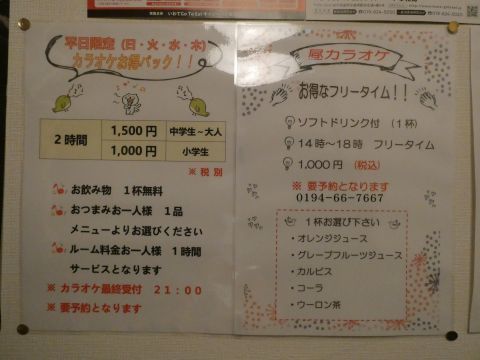 平日限定（日・火・水・木）
カラオケお得パック！！
２時間
1,500円 中学生～大人
1,000円 小学生
※税別
お飲み物 １杯無料
おつまみお一人様 １品
メニューよりお選びください
ルーム料金お一人様 １時間
サービスとなります
※ カラオケ最終受付 ２１：００
※ 要予約となります
昼カラオケ
お得なフリータイム！！
ソフトドリンク付（１杯）
１４時～１８時 フリータイム
1,000円（税込）
※ 要予約となります
0194-66-7667
１杯お選び下さい
・オレンジジュース
・グレープフルーツジュース
・カルピス
・コーラ
・ウーロン茶